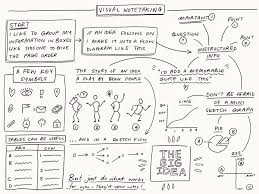 VISUAL NOTETAKING
START
I LIKE TO GROUP MY
INFORMATION IN BOXES
LIKE THIS ONE TO GIVE
THE PAGE ORDER
IF AN IDEA FOLLOWS ON
I MAKE IT INTO A FLOW
DIAGRAM LIKE THIS
IMPORTANT!
POINT
QUESTION
UNSTRUCTURED
INFO
POINT
A FEW KEY
SYMBOLS
THE STORY OF AN IDEA
A PLAY BY BEAN PEOPLE
"I'D ADD A MEMORABLE
QUOTE LIKE THIS"
DON'T BE AFRAID
OF A MINI
SKETCH GRAPH
LINE
PIE
TABLES CAN BE USEFUL
PRO
CON
... AND IN A SKETCH FLOW
THE
BIG
IDEA
BAR
But just do what works
for you - They're your notes!